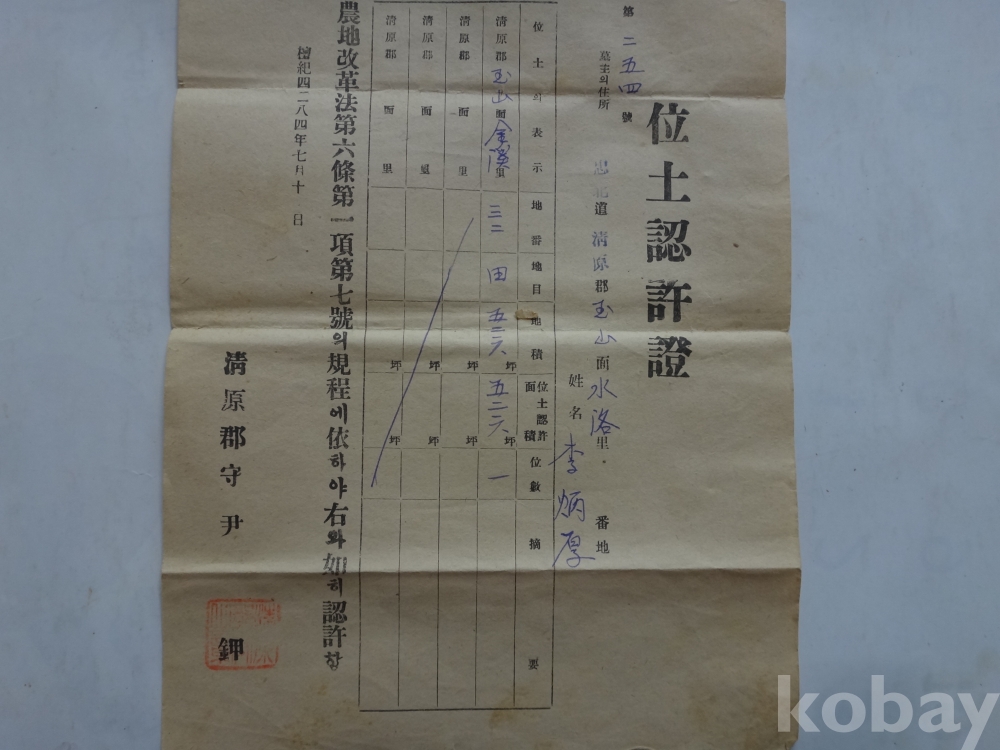 第二五四號
位土認許證
墓主의住所 忠北道淸原郡玉山面水洛里 番地
姓名 李炳厚
位土의表示 地番 地目 地積 位土認許面積 位數 摘要
淸原郡玉山面金溪里 三二 田 五二六坪 五二六坪 一
淸原郡 面 里 坪 坪
淸原郡 面 里 坪 坪
淸原郡 面 里 坪 坪
農地改革法第六條第一項第七號의規程에依하야右와如히認許함
檀紀四二八四年七月十 日
淸原郡守尹 鉀
kobay